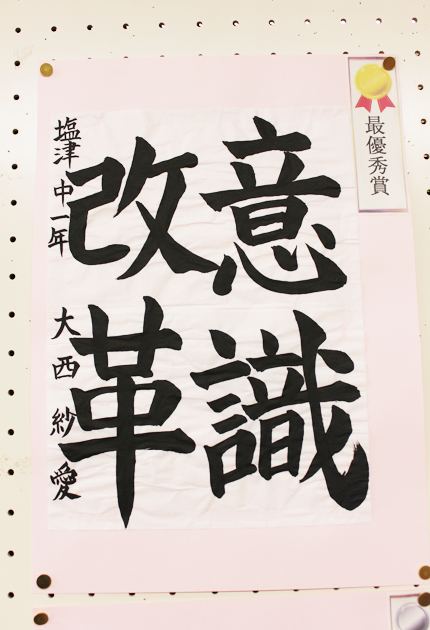 最優秀賞
意識
改革
塩津 中一年 大西 紗愛